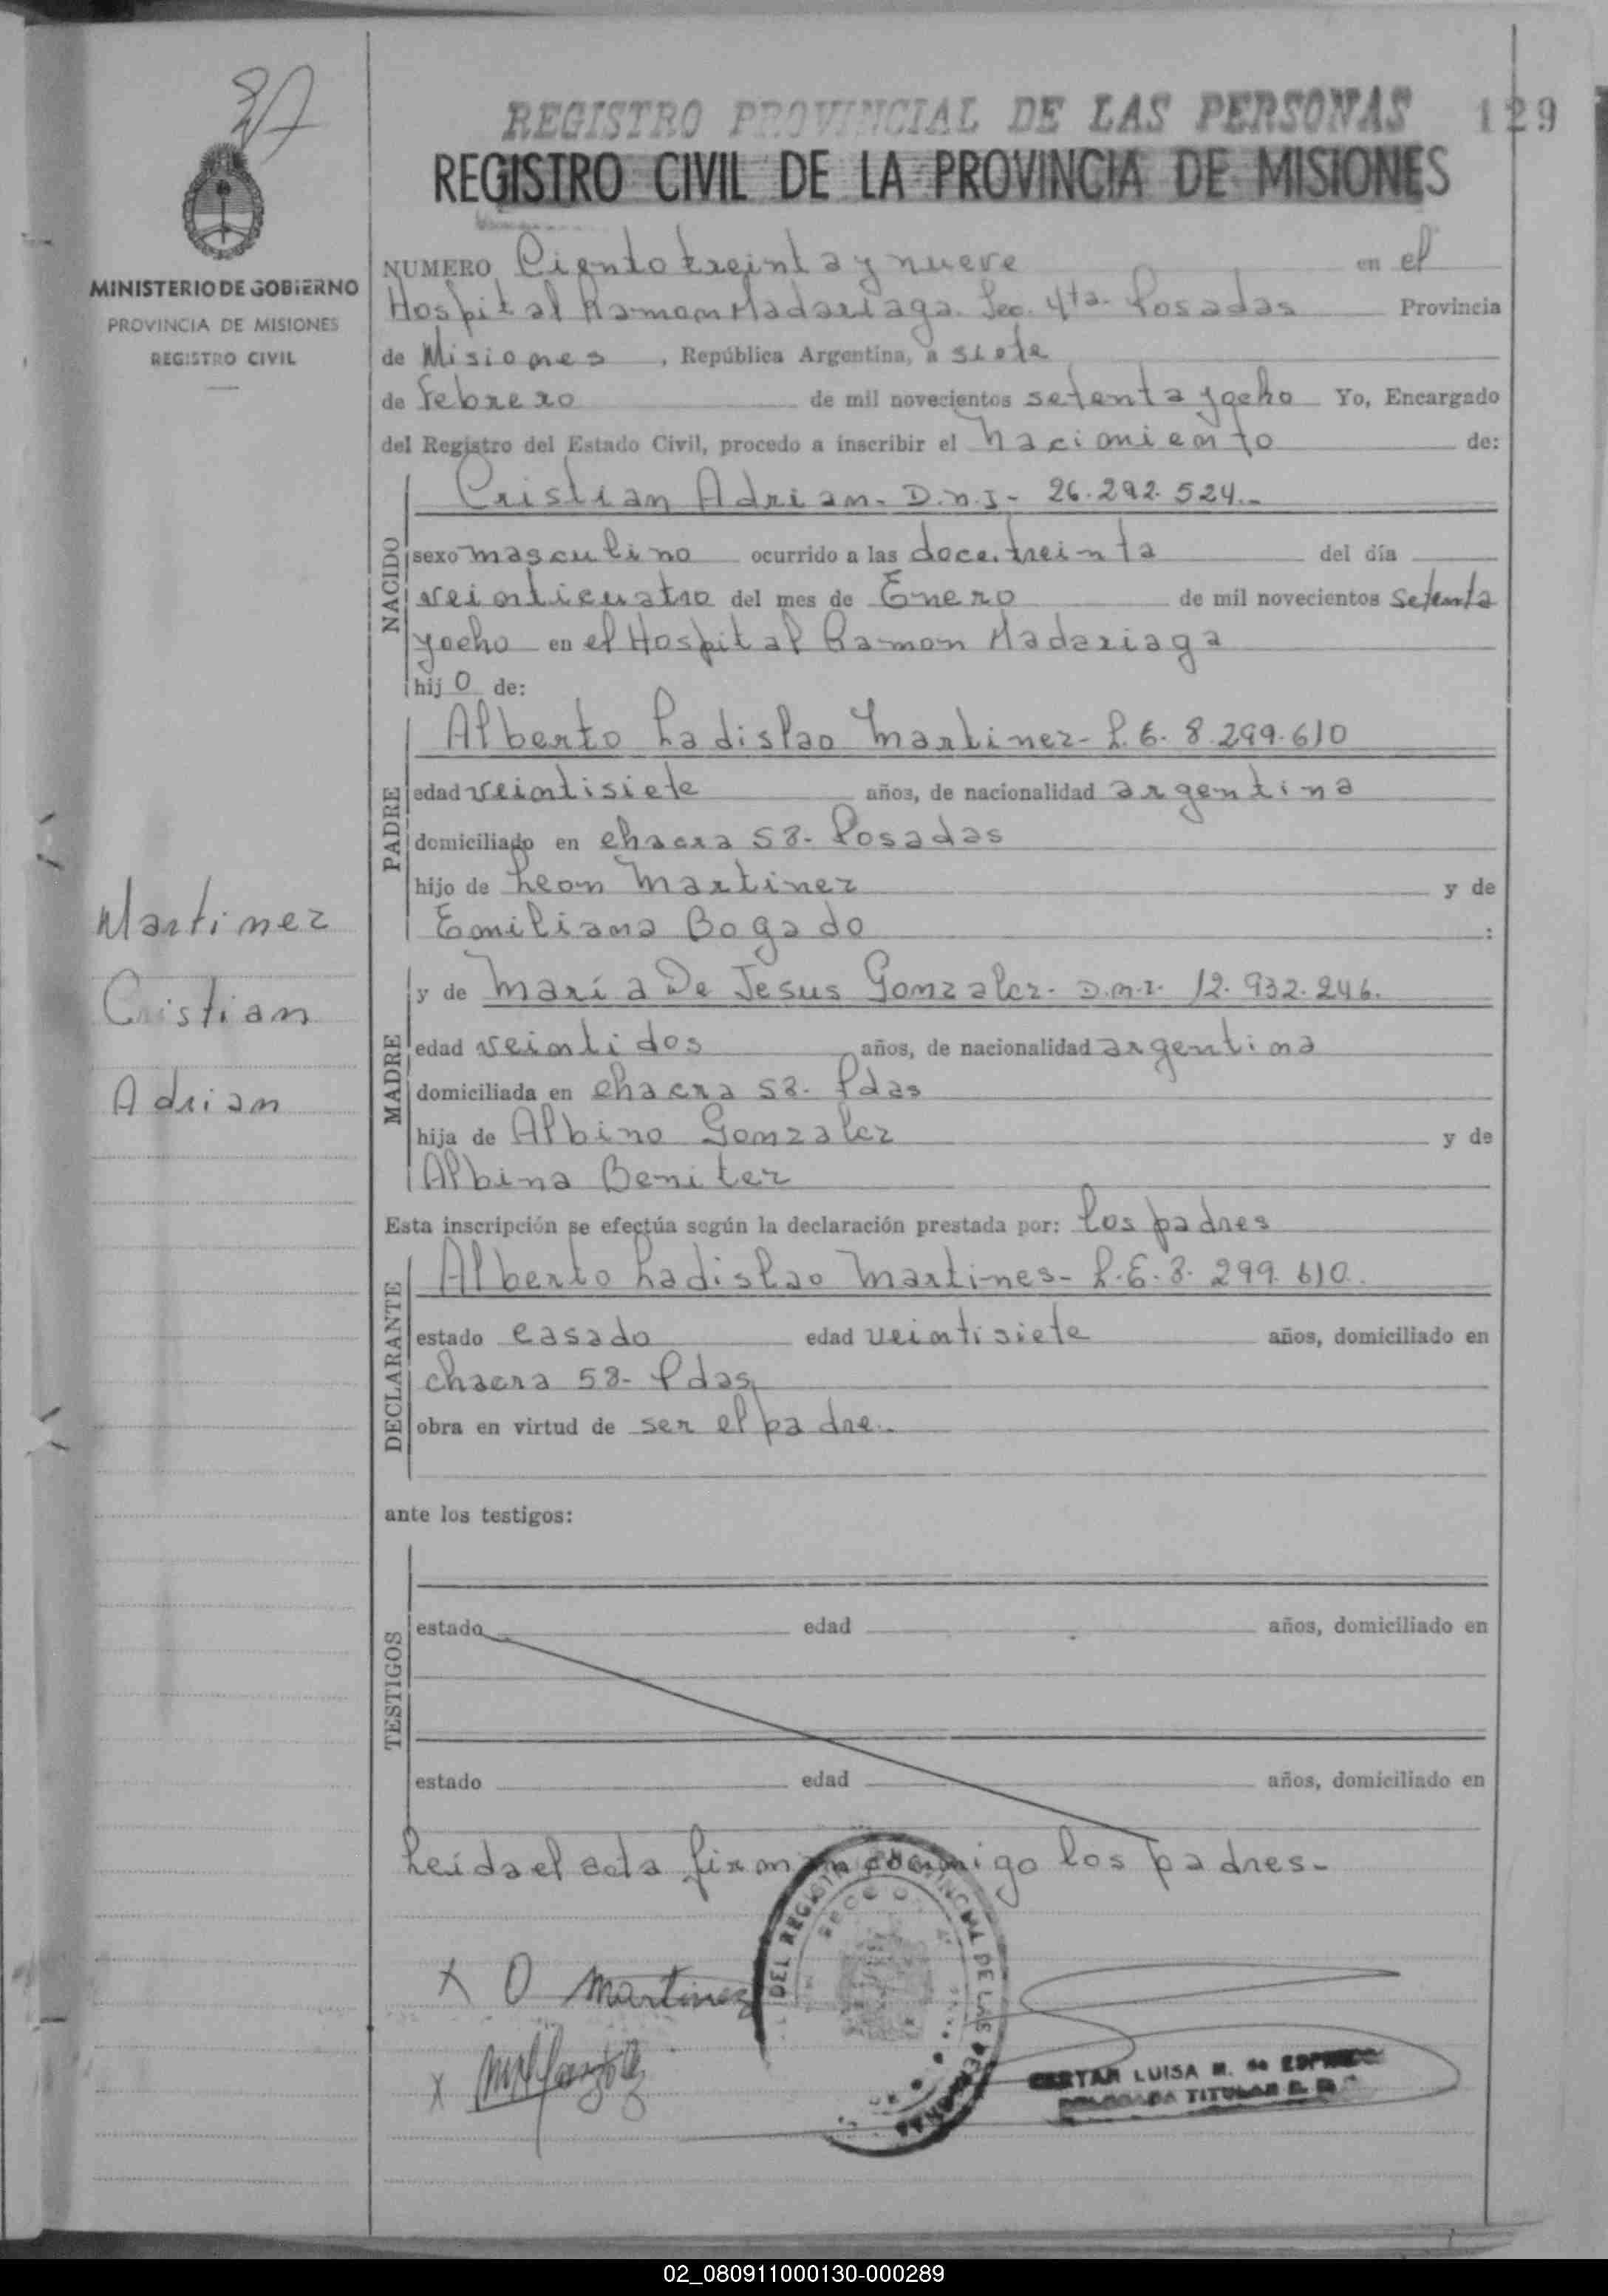 REGISTRO PROVINCIAL DE LAS PERSONAS 129
REGISTRO CIVIL DE LA PROVINCIA DE MISIONES
MINISTERIO DE GOBIERNO
PROVINCIA DE MISIONES
REGISTRO CIVIL
NUMERO Ciento treinta y nueve en el
Hospital Ramon Madariaga. Sec. 4ta. Posadas Provincia
de Misiones, República Argentina, a siete
de Febrero de mil novecientos setenta yocho Yo, Encargado
del Registro del Estado Civil, procedo a inscribir el nacimiento de:
NACIDO
Cristian Adrian - D.n.I - 26.292.524.-
sexo masculino ocurrido a las doce. treinta del día
veinticuatro del mes de Enero de mil novecientos setenta
yocho en el Hospital Ramon Madariaga
hij o de:
PADRE
Alberto Ladislao Martinez - L.E. 8.299.610
edad veintisiete años, de nacionalidad argentina
domiciliado en chacra 58 - Posadas
hijo de Leon Martinez y de
Emiliana Bogado :
Martinez
Cristian
Adrian
MADRE
y de María De Jesus Gonzalez - D.n.I. 12.932.246.
edad veintidos años, de nacionalidad argentina
domiciliada en chacra 58 - Pdas
hija de Albino Gonzalez y de
Albina Benitez
Esta inscripción se efectúa según la declaración prestada por: los padres
DECLARANTE
Alberto Ladislao Martines - L.E. 8.299.610.
estado casado edad veintisiete años, domiciliado en
chacra 58 - Pdas
obra en virtud de ser el padre.-
ante los testigos:
TESTIGOS
estado edad años, domiciliado en
estado edad años, domiciliado en
Leida el acta firman conmigo los padres -
DEL REGISTRO PROVINCIAL DE LAS PERSONAS
X O Martinez
X
LUISA M. de
TITULAR
02_080911000130-000289